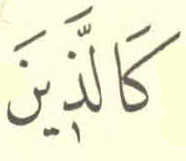 كَالَّذِينَ